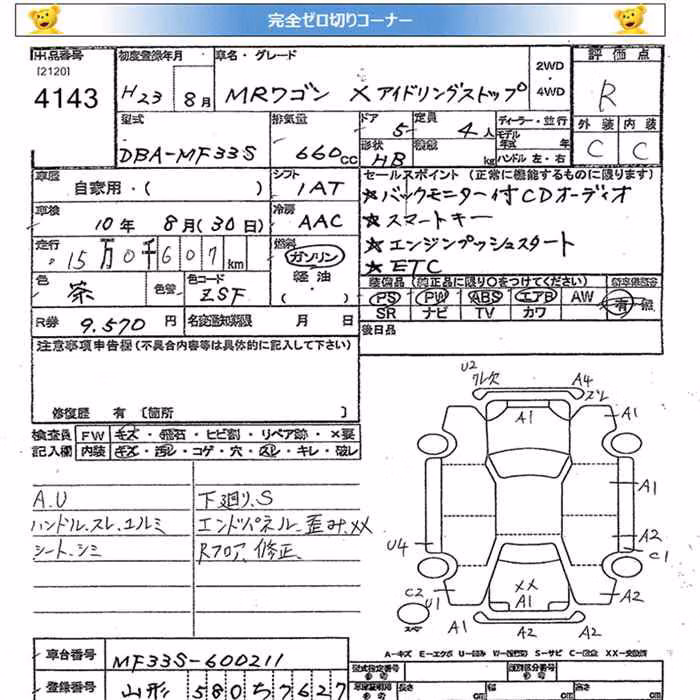 完全ゼロ切りコーナー
出品番号 初度登録年月 車名・グレード 2WD ・ 4WD 評価点
[2120]
4143 H23 8月 MRワゴン Xアイドリングストップ R
型式 排気量 ドア 定員 ディーラー・並行 外装 内装
DBA-MF33S 660cc 5 4人 モデル年式 年 C C
形状 HB 積載 kg ハンドル 左・右
車歴 自家用・( ) シフト IAT セールスポイント (正常に機能するものに限ります)
☆バックモニター付CDオーディオ
車検 10年 8月(30日) 冷房 AAC ☆スマートキー
走行 15万0千607km 燃料 ガソリン ☆エンジンプッシュスタート
軽油 ( ) ☆ETC
色 茶 色替 色コード ZSF 装備品(純正品に限り○をつけてください)
PS PW ABS エアB AW 有 無
SR ナビ TV カワ
R券 9.570円 名変通知期限 月 日 後日品
注意事項申告欄(不具合内容等は具体的に記入して下さい)
修復歴 有 [箇所 ]
検査員 FW キズ・飛石・ヒビ割・リペア跡・×要
記入欄 内装 キズ・汚レ・コゲ・穴・スレ・キレ・破レ
A.U 下廻り.S
ハンドル.スレ.ユルミ エンドパネル.歪み.XX
シート.シミ Rフロア.修正.
U2 グレ欠 A4 ズレ
A1 A1
A1
U4 A2 C1
XX
C2 U1 A1 A2
A1 A2 A2
A-キズ E-エクボ U-凹み W-(波凹) S-サビ C-腐食 XX-交換済
車台番号 MF33S-600211 型式指定番号 類別区分番号
登録番号 山形 580 ち 7627 長さ